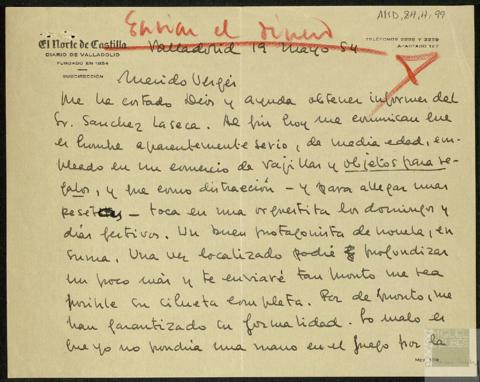 AMD, 84, H, 99
Enviar el dinero
El Norte de Castilla
DIARIO DE VALLADOLID
FUNDADO EN 1854
SUBDIRECCIÓN
TELÉFONOS 2226 Y 2279
APARTADO 127
Valladolid 19 mayo 54
Querido Vergés
Me ha costado Dios y ayuda obtener informes del
Sr. Sanchez Laseca. Al fin hoy me comunican que
es hombre aparentemente serio, de media edad, em-
pleado en un comercio de vajillas y objetos para re-
galos, y que como distracción – y para allegar unas
pesetas – toca en una orquestita los domingos y
días festivos. Un buen protagonista de novela, en
suma. Una vez localizado podré profundizar
un poco más y te enviaré tan pronto me sea
posible su silueta completa. Por de pronto, me
han garantizado su formalidad. Lo malo es
que yo no pondría una mano en el fuego por la